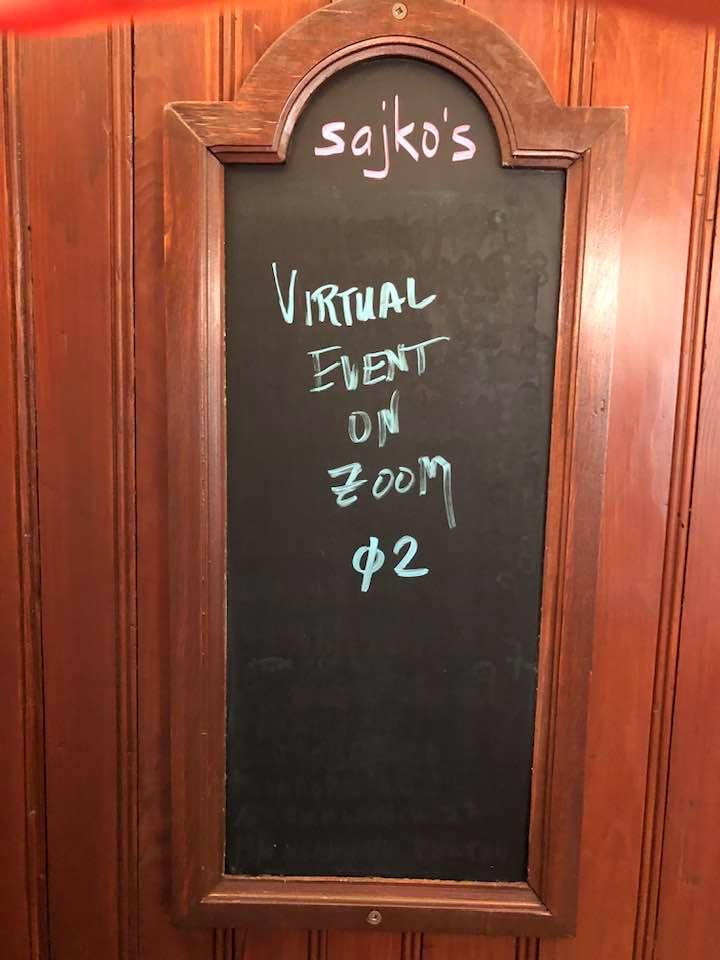 sajko's
VIRTUAL
EVENT
ON
ZOOM
φ2